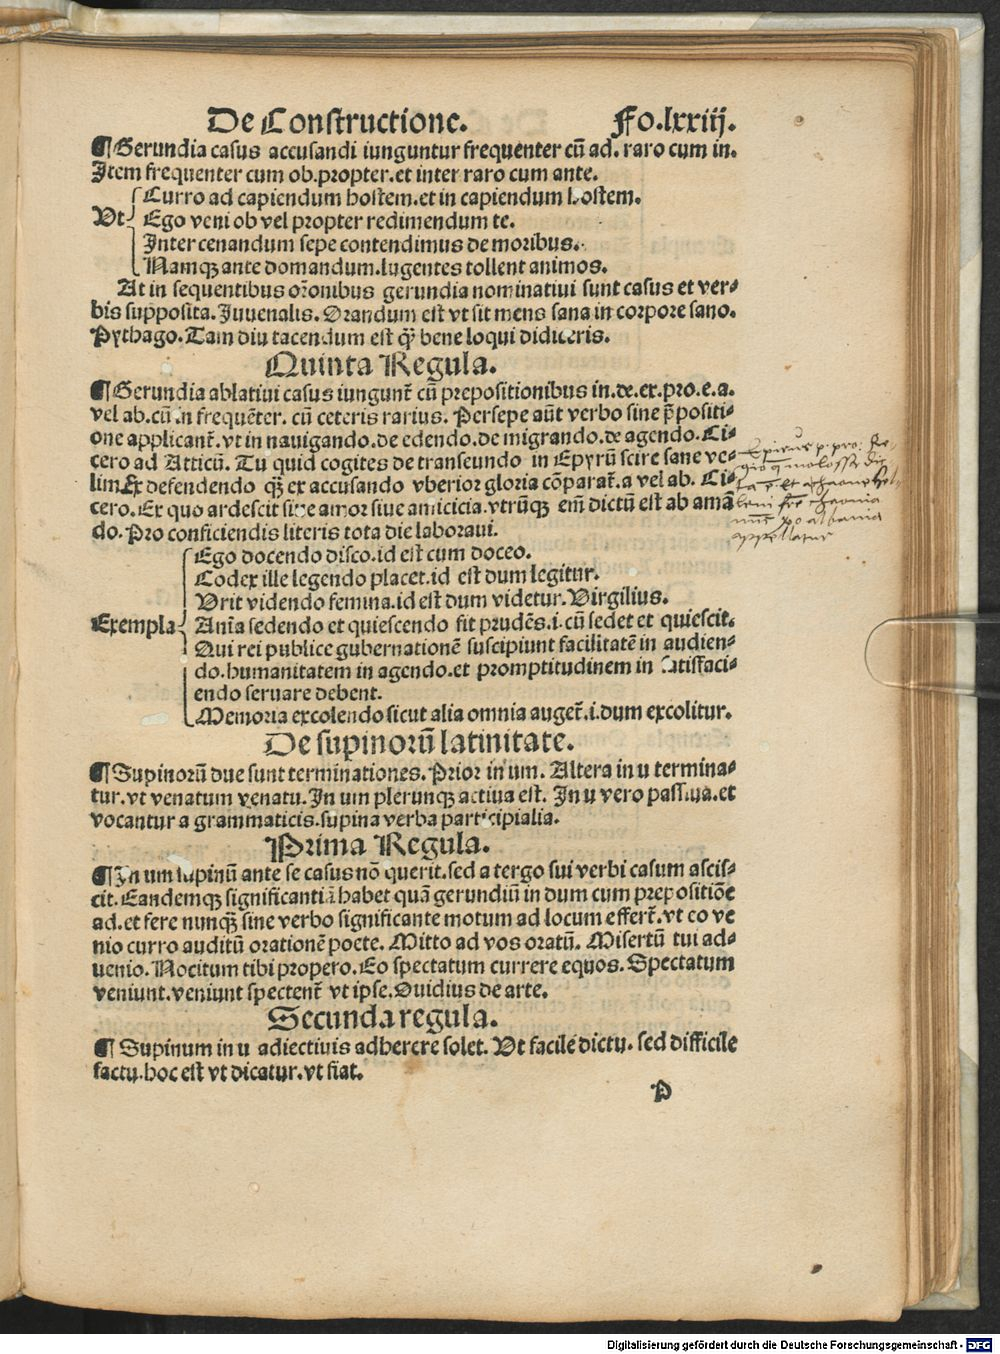 De Constructione. Fo.lxxiij.
¶ Gerundia casus accusandi iunguntur frequenter cũ ad. raro cum in.
Item frequenter cum ob.propter.et inter raro cum ante.
Curro ad capiendum hostem.et in capiendum hostem.
Vt Ego veni ob vel propter redimendum te.
Inter cenandum sepe contendimus de moribus.
Namqʒ ante domandum.lugentes tollent animos.
At in sequentibus or̃onibus gerundia nominatiui sunt casus et ver-
bis supposita. Juuenalis. Orandum est vt sit mens sana in corpore sano.
Pythago. Tam diu tacendum est q̃ʒ bene loqui didiceris.
Quinta Regula.
¶ Gerundia ablatiui casus iungunt̃ cũ prepositionibus in.de.ex.pro.e.a.
vel ab.cũ in frequẽter. cũ ceteris rarius. Persepe aũt verbo sine p̃positi-
one applicant̃. vt in nauigando.de edendo.de migrando.de agendo. Ci-
cero ad Atticũ. Tu quid cogites de transeundo in Epyrũ scire sane ve-
lim.Ex defendendo q̃ʒ ex accusando vberior gloria cõparat̃.a vel ab. Ci-
cero. Ex quo ardescit siue amor siue amicicia.vtrũqʒ em̃ dictũ est ab amã
do. Pro conficiendis literis tota die laboraui.
Ego docendo disco.id est cum doceo.
Codex ille legendo placet.id est dum legitur.
Vrit videndo femina.id est dum videtur. Virgilius.
Exempla Anĩa sedendo et quiescendo fit prudẽs.i.cũ sedet et quiescit.
Qui rei publice gubernationẽ suscipiunt facilitatẽ in audien-
do.humanitatem in agendo.et promptitudinem in satisfaci-
endo seruare debent.
Memoria excolendo sicut alia omnia auget̃.i.dum excolitur.
De supinorũ latinitate.
¶ Supinorũ due sunt terminationes. Prior in um. Altera in u termina-
tur.vt venatum venatu. In um plerunqʒ actiua est. In u vero passiua.et
vocantur a grammaticis.supina verba participialia.
Prima Regula.
¶ In um supinũ ante se casus nõ querit.sed a tergo sui verbi casum ascis-
cit. Eandemqʒ significantiã habet quã gerundiũ in dum cum prepositiõe
ad.et fere nunqʒ sine verbo significante motum ad locum effert̃.vt eo ve
nio curro auditũ orationẽ poete. Mitto ad vos oratũ. Misertũ tui ad-
uenio. Nocitum tibi propero. Eo spectatum currere equos. Spectatum
veniunt.veniunt spectent̃ vt ipse. Ouidius de arte.
Secunda regula.
¶ Supinum in u adiectiuis adherere solet. Vt facile dictu. sed difficile
factu.hoc est vt dicatur.vt fiat.
P
Epirus p. pro: Re-
gio q molossi di
ta
chaonia
albania
appellatur
Digitalisierung gefördert durch die Deutsche Forschungsgemeinschaft - DFG